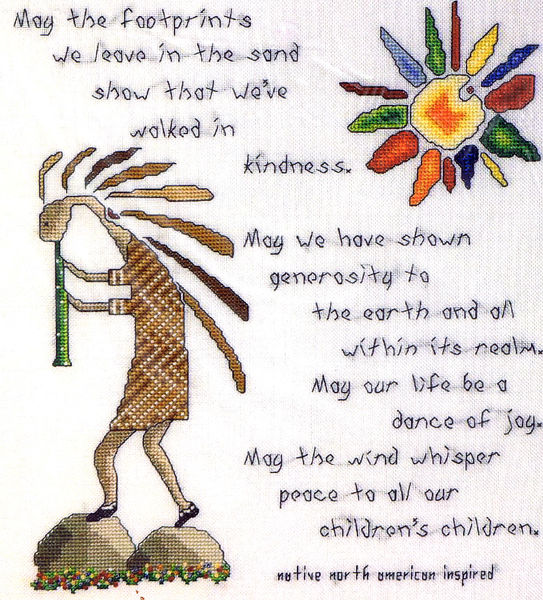 May the footprints
we leave in the sand
show that we've
walked in
kindness.
May we have shown
generosity to
the earth and all
within its realm.
May our life be a
dance of joy.
May the wind whisper
peace to all our
children's children.
native north american inspired